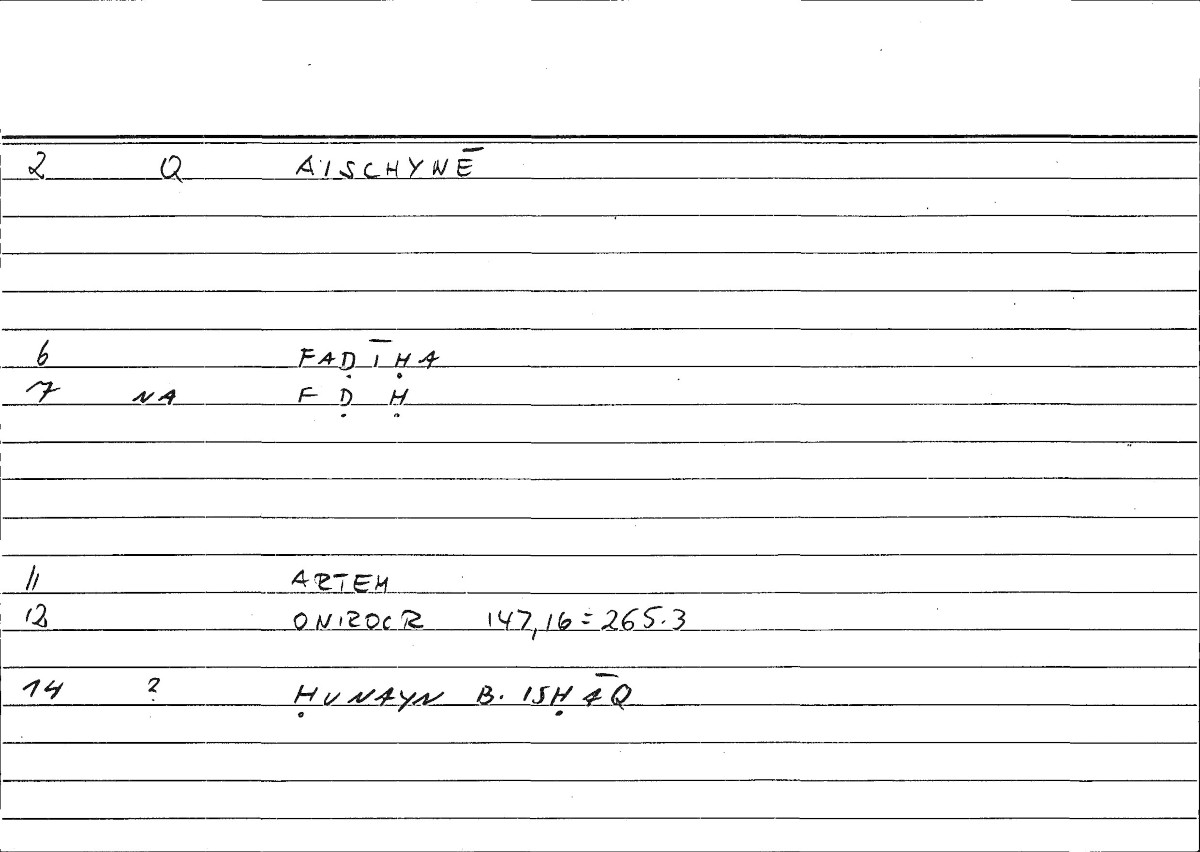 2 Q AISCHYNĒ
6 FAḌĪḤA
7 NA F Ḍ Ḥ
11 ARTEM
12 ONIROCR 147,16=265.3
14 ? ḤUNAYN B. ISḤĀQ